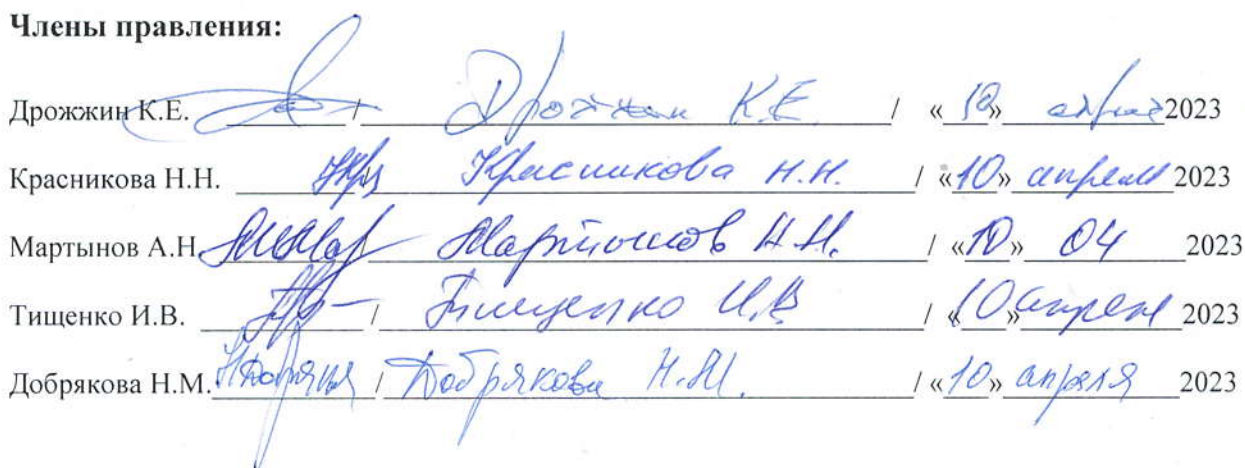 Члены правления:
Дрожжин К.Е. / Дрожжин К.Е. / «10» апреля 2023
Красникова Н.Н. / Красникова Н.Н. / «10» апреля 2023
Мартынов А.Н. / Мартынов А.Н. / «10» 04 2023
Тищенко И.В. / Тищенко И.В / «10» апреля 2023
Добрякова Н.М. / Добрякова Н.М. / «10» апреля 2023